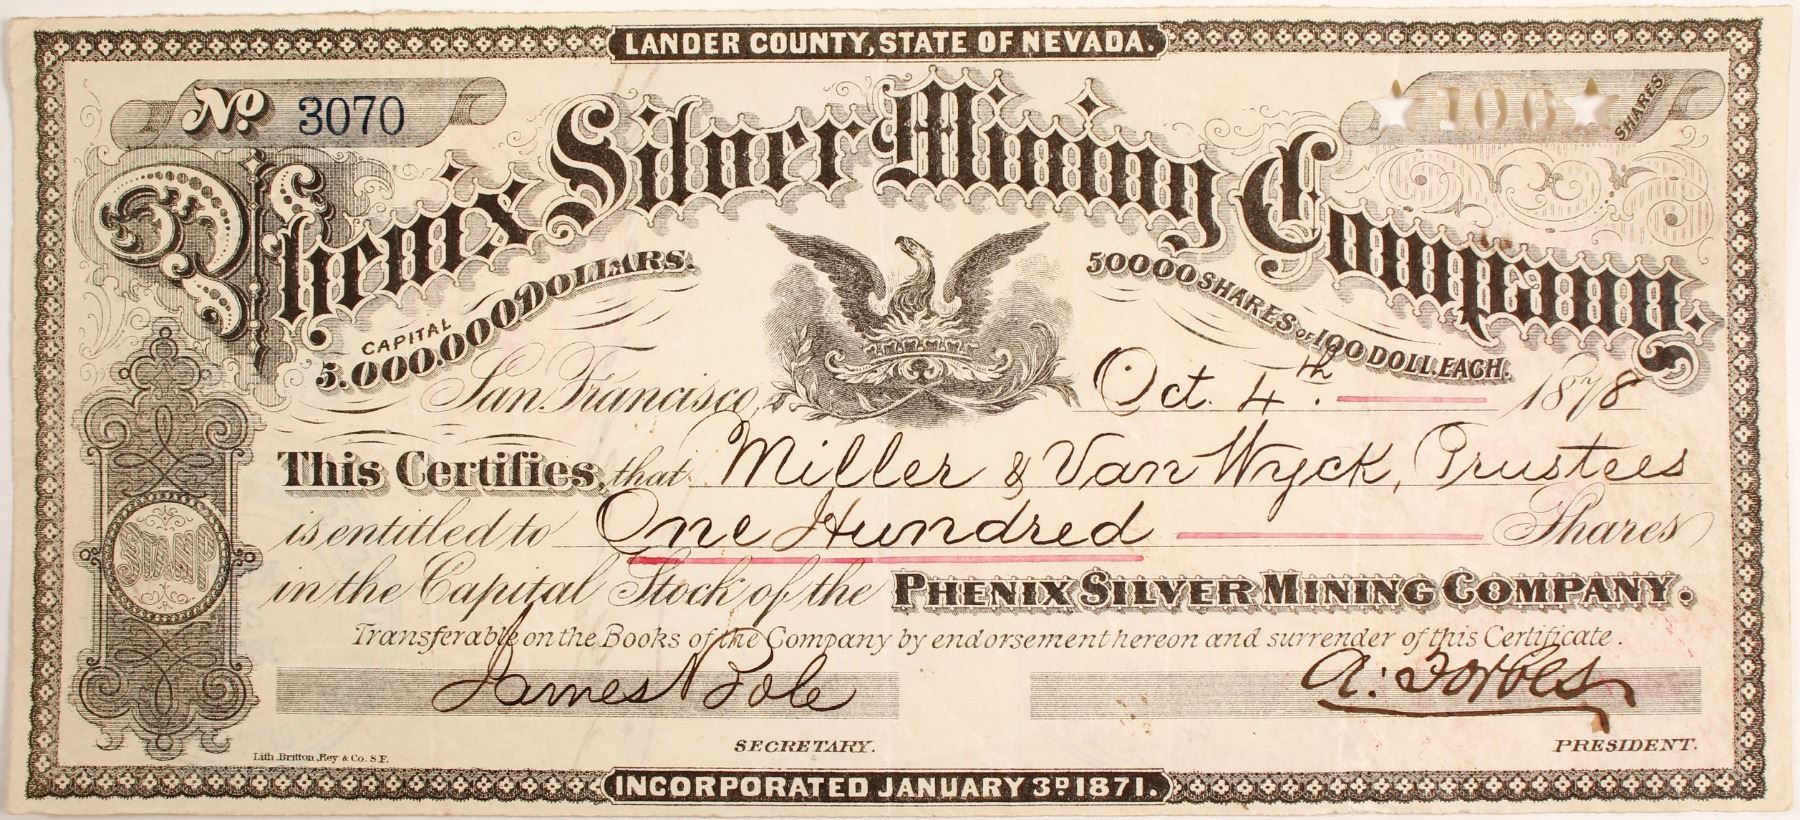 LANDER COUNTY, STATE OF NEVADA.
No. 3070
★100★ SHARES
Phenix Silver Mining Company.
CAPITAL
5.000.000 DOLLARS.
50000 SHARES OF 100 DOLL. EACH.
San Francisco, Oct. 4th. 1878
This Certifies, that Miller & Van Wyck, Trustees
is entitled to One Hundred Shares
in the Capital Stock of the PHENIX SILVER MINING COMPANY.
Transferable on the Books of the Company by endorsement hereon and surrender of this Certificate.
STAMP
James N Pole
A. Forbes
SECRETARY.
PRESIDENT.
Lith. Britton, Rey & Co. S.F.
INCORPORATED JANUARY 3D 1871.